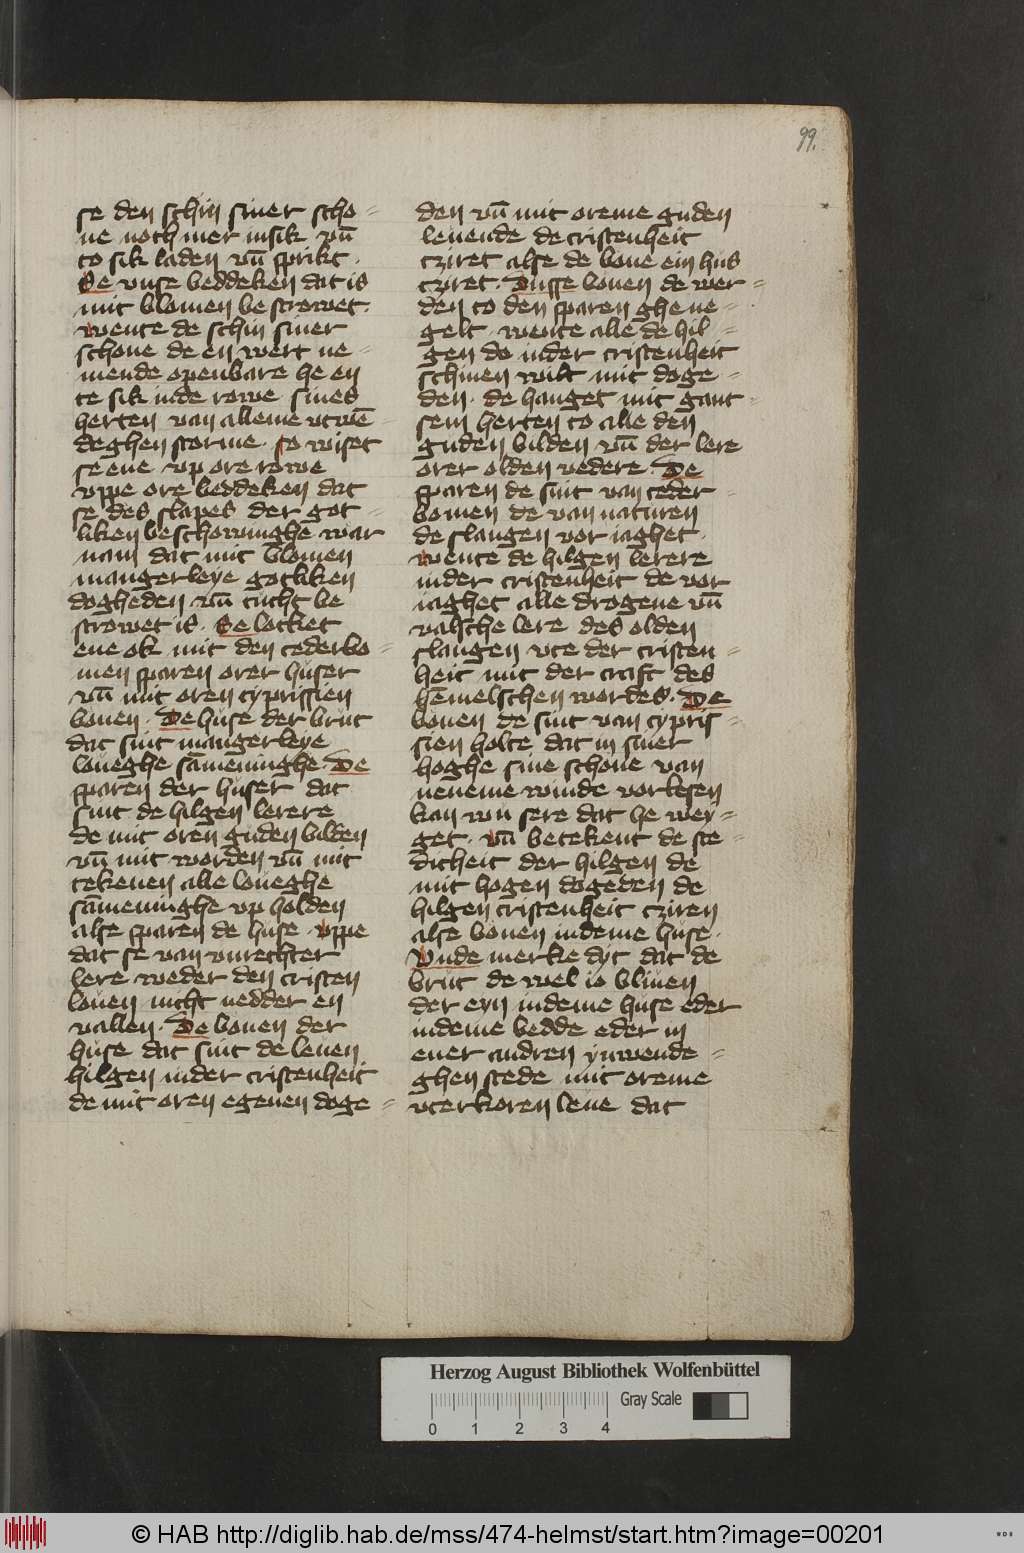 99.
se den schin siner scho=
ne noch mer in sik vn̄
to sik laden vn̄ sprikt·
Se vnse beddeken dat is
mit blomen be strowet·
wente de schin siner
schone de en wert ne=
mende openbare he en
te sik in de rowe sines
herten van alleme vtwē=
deghen storme· so wiset
se ene vp ore rowe
vppe ore beddeken dat
se des slapes der got=
liken beschowinghe war
nam dat mit blomen
mangerleye gotliken
dogheden vn̄ tucht be
strowet is· Se locket
ene ok mit den cederbo=
men sparen orer huser
vn̄ mit oren cyprissien
bonen· De huse der brut
dat sint mangerleye
loueghe sāmeninghe· De
sparen der huser dat
sint de hilgen lerere
de mit oren guden bilden
vn̄ mit worden vn̄ mit
tekenen alle loueghe
sāmeninghe vp holden
alse sparen de huse· vppe
dat se van vnrechter
lere weder den cristen
louen nicht nedder en
vallen· De bonen der
huse dat sint de leuen
hilgen in der cristenheit
de mit oren egenen doge=
den vn̄ mit oreme guden
leuende de cristenheit
cziret alse de bone ein hus
cziret· Dusse bonen de wer=
den to den sparen ghe ne=
gelt· wente alle de hil=
gen de in der cristenheit
schinen wilt mit doge=
den· de hanget mit gant=
sem herten to alle den
guden bilden vn̄ der lere
orer olden vedere· De
sparen de sint van ceder=
bomen de van naturen
de slangen vor iaghet·
wente de hilgen lerere
in der cristenheit de vor
iaghet alle drogene vn̄
valsche lere des olden
slangen vte der cristen=
heit mit der craft des
hēmelschen wordes· De
bonen de sint van cypris=
sien holte dat in siner
hoghe sine schone van
neneme winde vorlesen
kan wu sere dat he wey=
get· vn̄ betekent de ste=
dicheit der hilgen de
mit hogen dogeden de
hilgen cristenheit cziren
alse bonen in deme huse·
Vnde merke dyt dat de
brut de wel io bliuen
der eyn in deme huse eder
in deme bedde eder in
ener andren ynwende=
ghen stede mit oreme
vterkoren leue dat
Herzog August Bibliothek Wolfenbüttel
Gray Scale
0 1 2 3 4
© HAB http://diglib.hab.de/mss/474-helmst/start.htm?image=00201